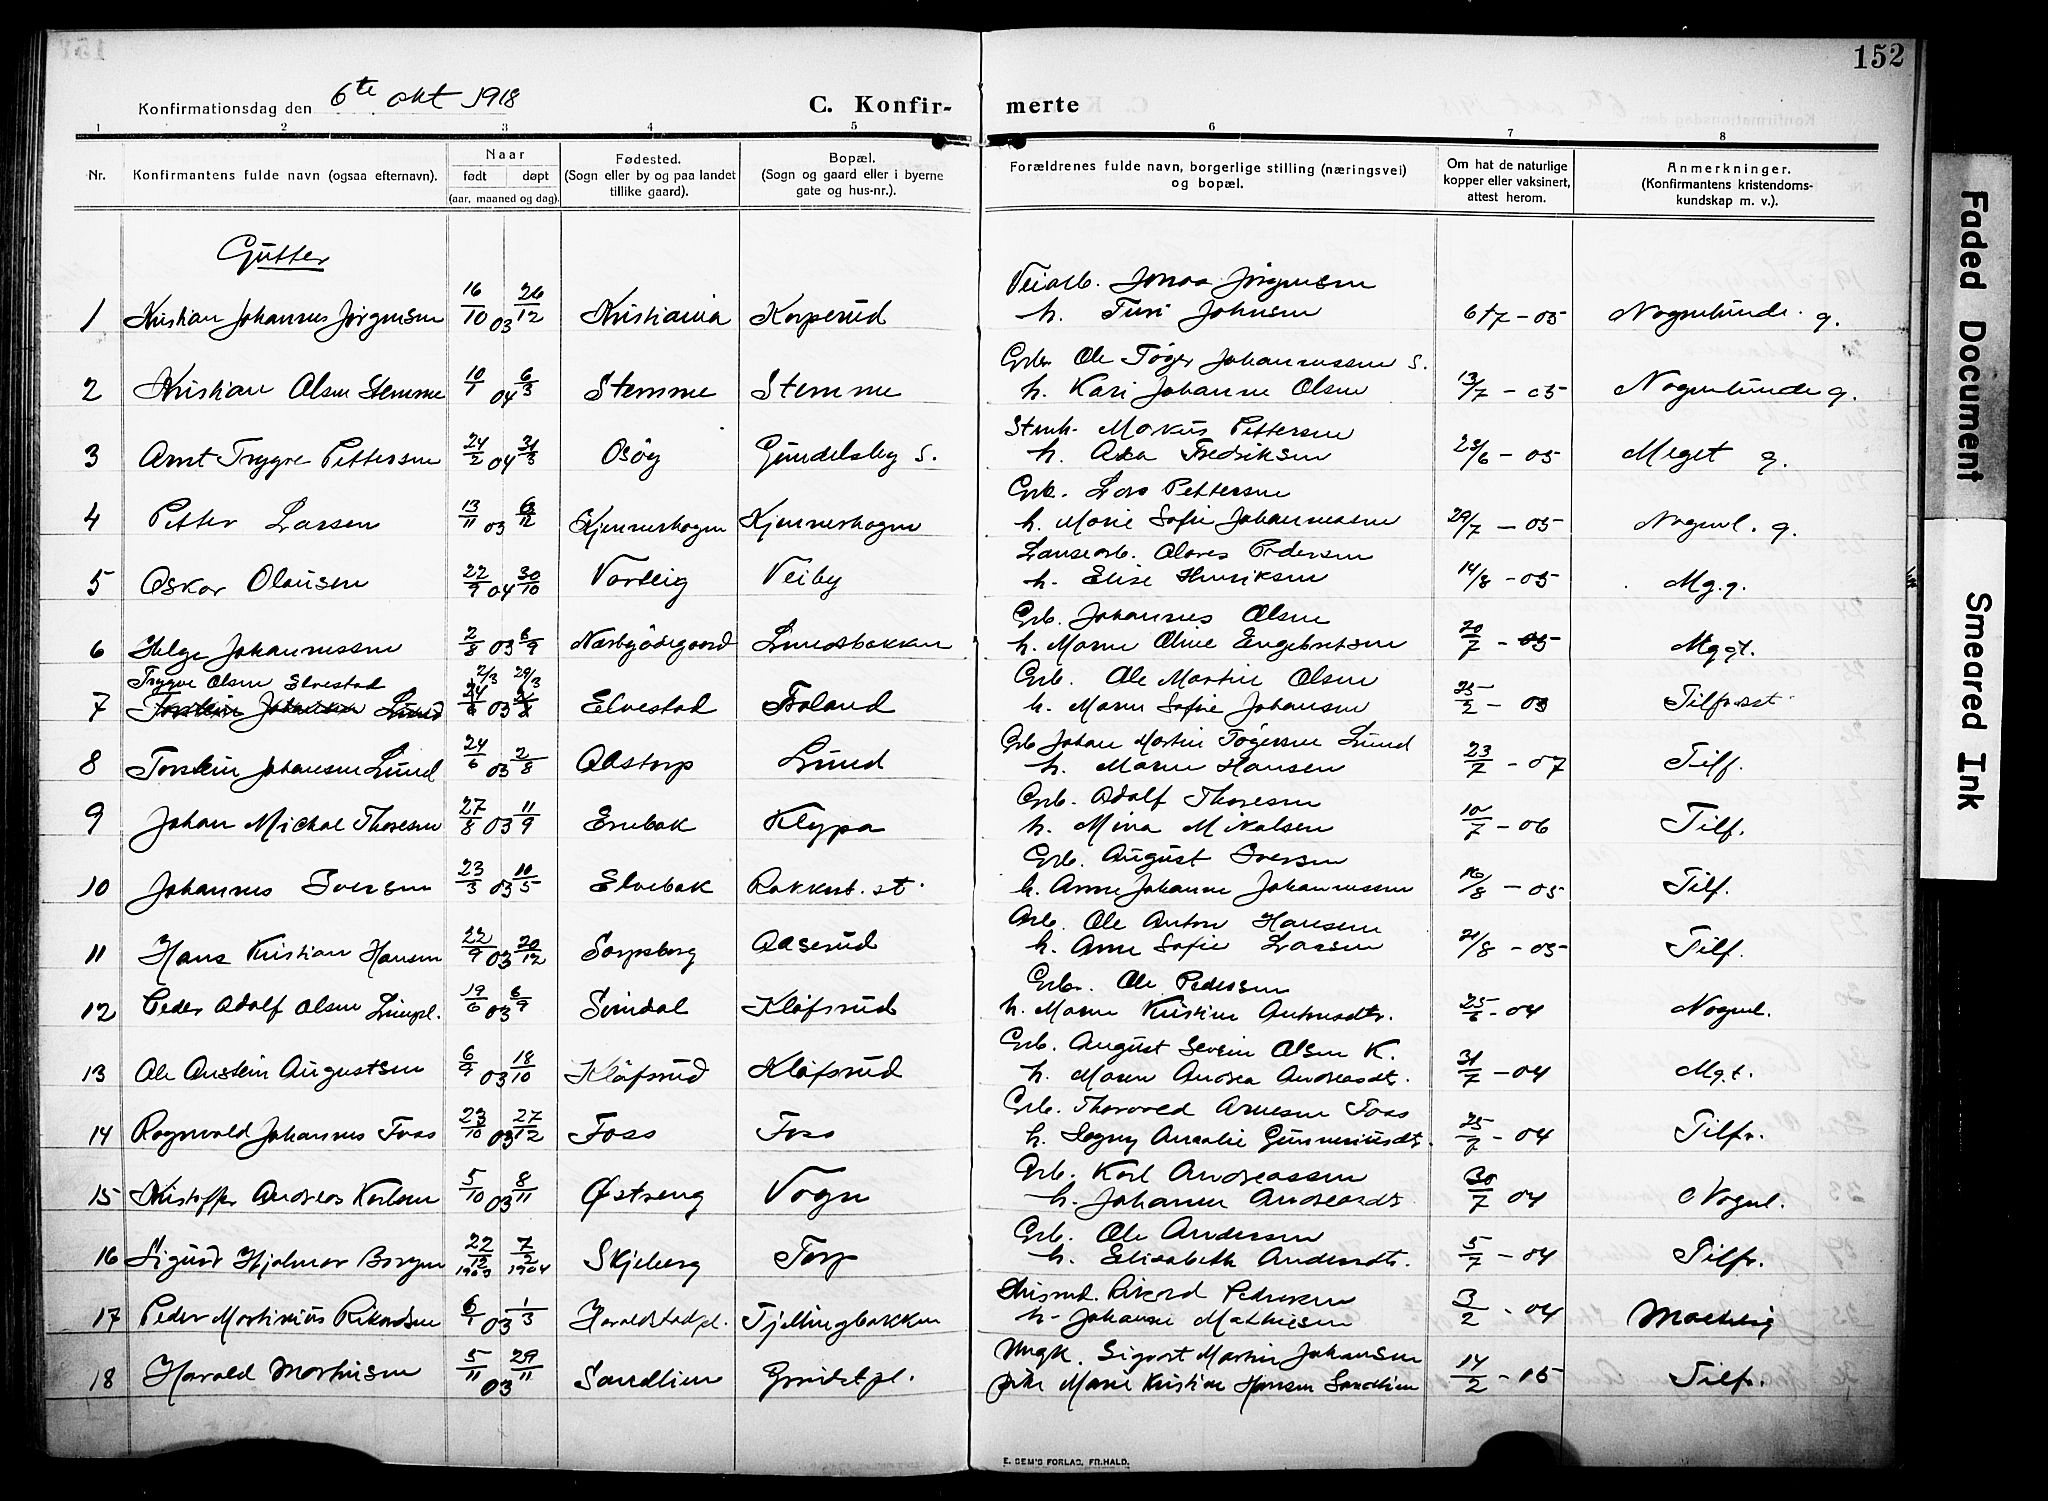 152
Konfirmationsdag den 6te okt 1918
C. Konfir- merte
1 2 3 4 5 6 7 8
Nr. Konfirmantens fulde navn (ogsaa efternavn). Naar født døpt (aar, maaned og dag). Fødested. (Sogn eller by og paa landet tillike gaard). Bopæl. (Sogn og gaard eller i byerne gate og hus-nr.). Forældrenes fulde navn, borgerlige stilling (næringsvei) og bopæl. Om hat de naturlige kopper eller vaksinert, attest herom. Anmerkninger. (Konfirmantens kristendoms- kundskap m. v.).
Gutter
Jonas Jörgensen
1 Kristian Johannes Jörgensen 16/10 03 26/12 Kristiania Korperud h. Turi Johnsen 6/7 - 05 g.
Ole Töger Johannessen S.
2 Kristian Olsen Stemme 10/1 04 6/3 Stemme Stemme h. Kari Johanne Olsen 13/7 - 05 g.
Markus Pettersen
3 Arnt Trygve Pettersen 24/2 04 31/3 Gundelsby S. h. Fredriksen /6 - 05 Meget g.
Lars Pettersen
4 Petter Larsen 13/11 03 6/12 Kjennerhagen Kjennerhagen h. Marie Sofie Johannessen 29/7 - 05 Nogenl. g.
Pedersen
5 Oskar Olausen 22/9 04 30/10 Varteig Veiby h. Elise Henriksen 14/8 - 05 Mg. g.
Grb. Johannes Olsen
6 Helge Johannessen 2/8 03 6/9 Lundsbakken h. Maren Oline Engebretsen 20/7 - 05 Mg gt.
Trygve Olsen Elvestad 2/3 29/3 Grb. Ole Martin Olsen
7 Lund 24/6 03 Elvestad h. Maren Sofie Johansen 25/2 - 03
Grb Johan Martin Tögersen Lund
8 Torstein Johansen Lund 24/6 03 2/8 Aastorp Lund h. Maren Hansen 23/7 - 07 Tilf.
Grb. Adolf Thoresen
9 Johan Mickal Thoresen 27/8 03 11/9 Enebak Klypa h. Mina Mikalsen 10/7 - 06 Tilf.
Grb. August Iversen
10 Johannes Iversen 23/3 03 10/5 Rakkest. st. h. Anne Johanne Johannessen 16/8 - 05 Tilf.
Arb. Ole Anton Hansen
11 Hans Kristian Hansen 22/9 03 20/12 Sarpsborg Aaserud h. Anne Sofie Larsen 21/8 - 05 Tilf.
Grb. Ole Pedersen
12 Peder Adolf Olsen 19/6 03 6/9 Svindal Klöfsrud h. Maren Kristine 25/6 - 04 Nogenl.
Grb. August Severin Olsen K.
13 Ole Anstein Augustsen 6/9 03 18/10 Klöfsrud Klöfsrud h. Maren Andrea Andreasdtr. 31/7 - 04 Mg. t.
Grb. Thorvald Arnesen Foss
14 Ragnvald Johannes Foss 23/10 03 27/12 Foss Foss h. Amalie Gunneriusdtr. 25/7 - 04 Tilfr.
Arb. Karl Andreassen
15 Kristoffer Andreas Karlsen 5/10 03 8/11 Østreng Vogn h. Johanne Andreasdt 30/7 04 Nogenl.
Grb. Ole Andersen
16 Sigurd Hjalmar Borgen 22/12 1903 7/2 1904 Skjeberg Torp h. Elisabeth Andersdtr. 5/7 - 04 Tilfr.
Rikard Pedersen
17 Peder Martinius Rikardsen 6/1 03 1/3 Haraldstad pl. Tjellingbakken h. Johanne Mathiesen 3/2 - 04 Maadelig
Ungk. Sigvart Martin Johansen
18 Harald Martinsen 5/11 03 29/11 Sandlien pike Marie Kristine Hansen Sandlien 14/2 - 15 Tilfr.
E. SEM'S FORLAG, FR.HALD.
Faded Document
Smeared Ink